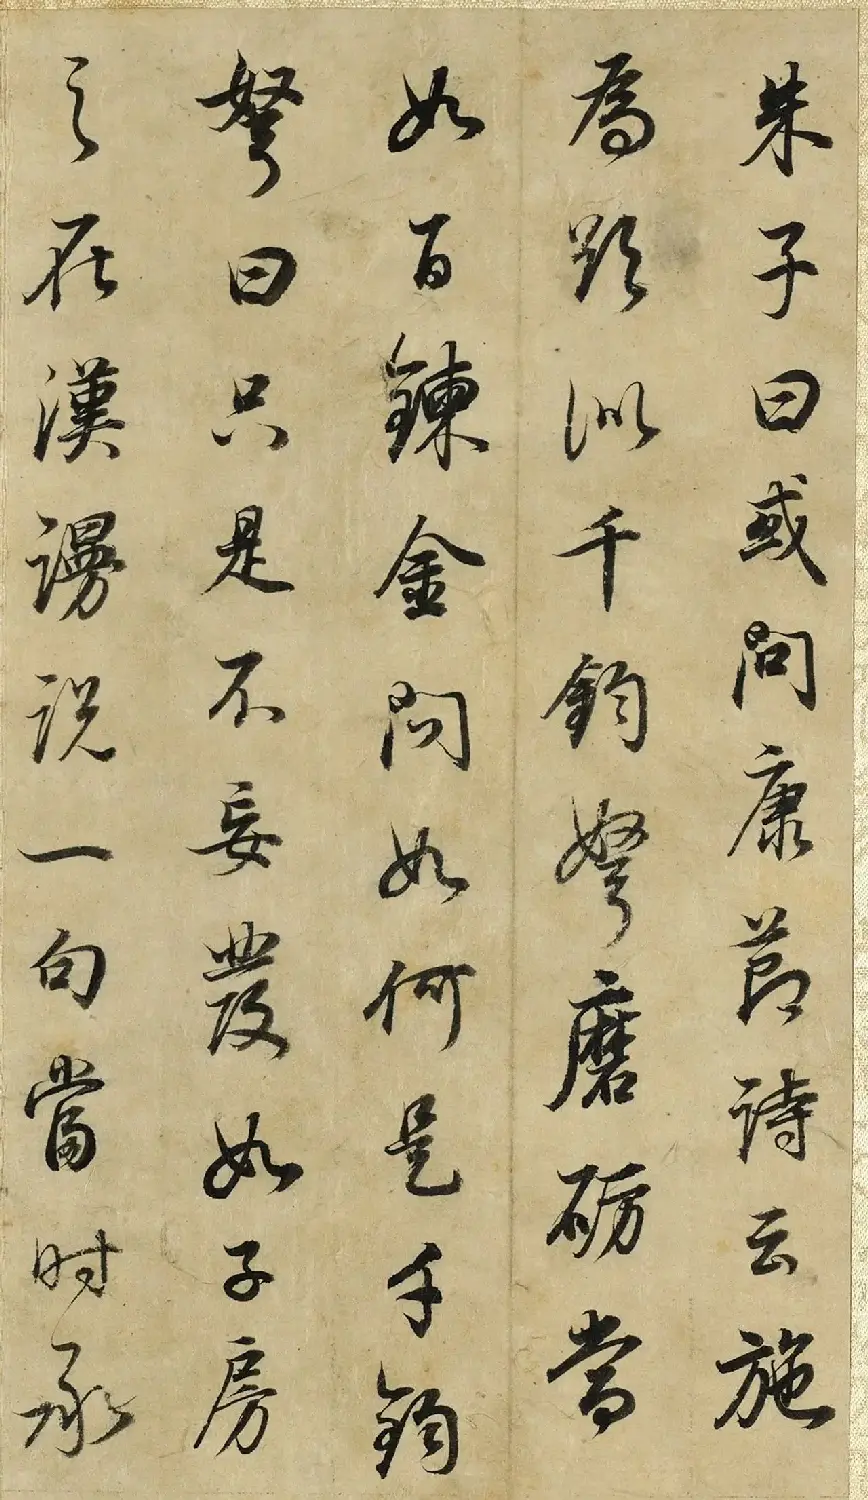 朱子曰或問康節詩云施
為欲似千鈞弩磨礪當
如百鍊金問如何是千鈞
弩曰只是不妄發如子房
之在漢謾說一句當時承